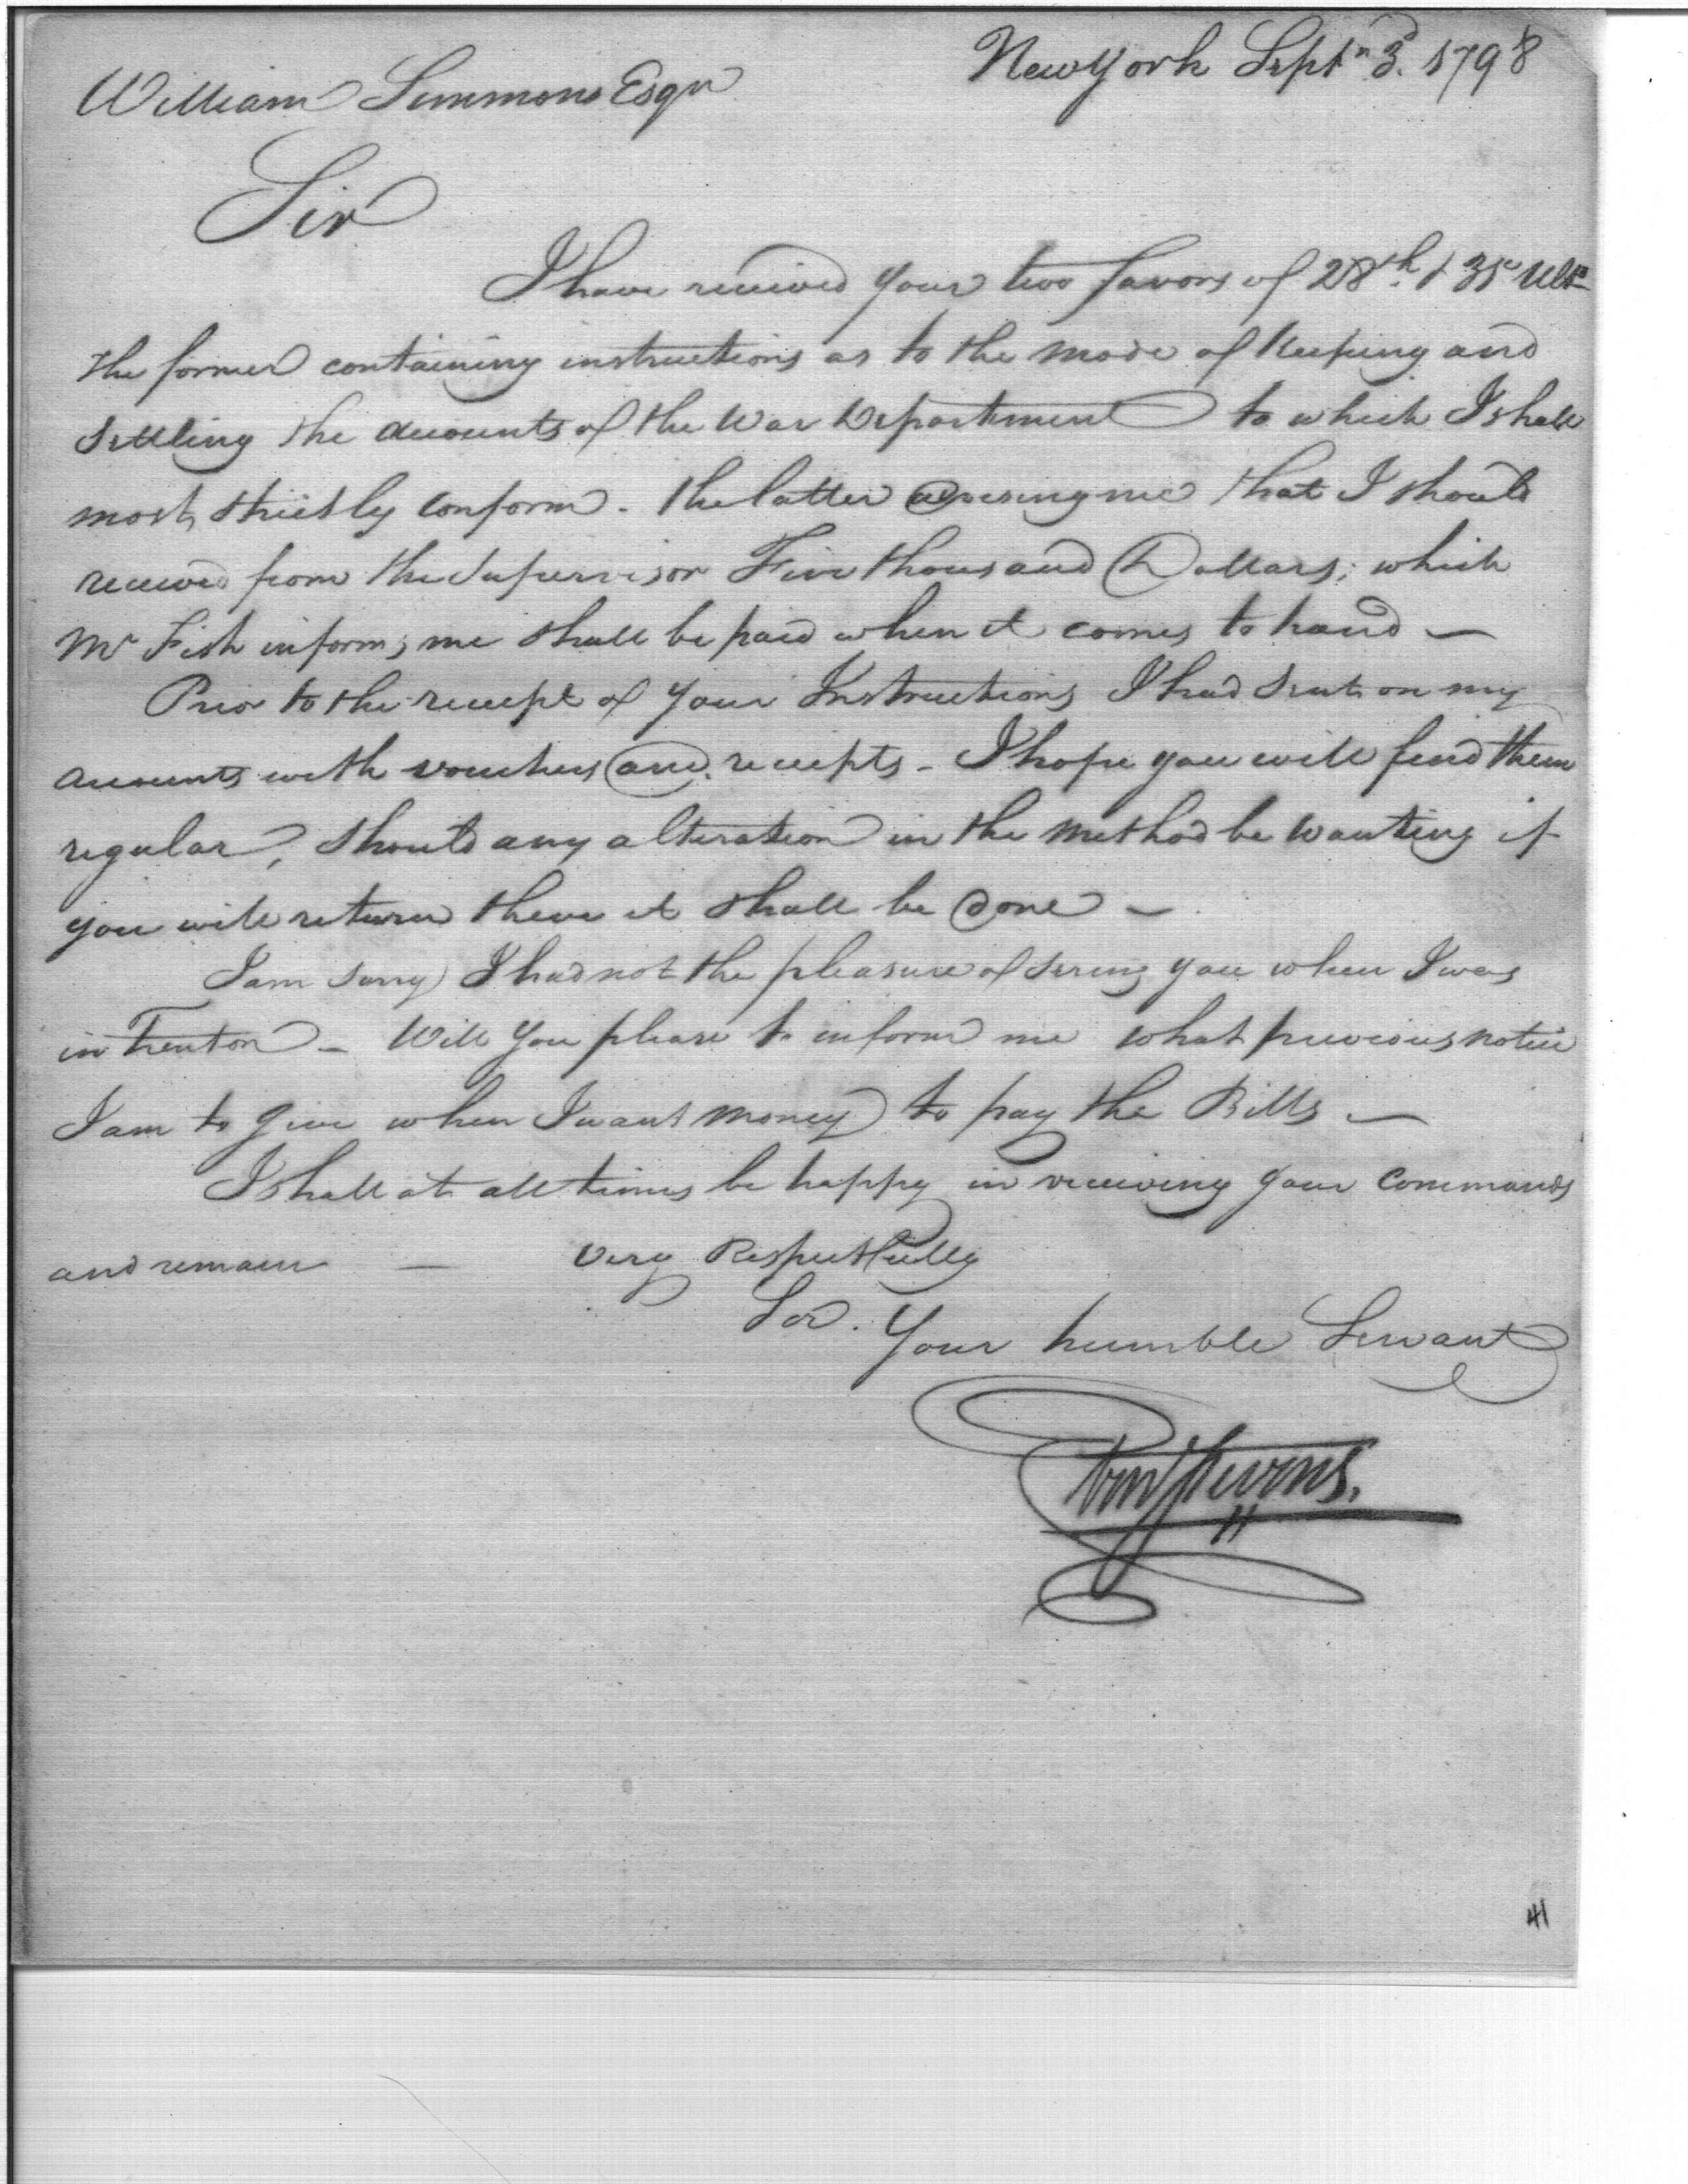 New York Septr 3d. 1798
William Simmons Esqr
Sir
I have received your two favors of 28th. & 31st Ulto
the former containing instructions as to the mode of keeping and
settling the accounts of the War Department to which I shall
most strictly conform. the latter advising me that I should
receive from the Supervisor Five thousand Dollars; which
Mr Fish informs me shall be paid when it comes to hand —
Prior to the receipt of your Instructions I had sent on my
accounts with vouchers and receipts - I hope you will find them
regular, should any alteration in the method be wanting if
you will return them it shall be done —
I am sorry I had not the pleasure of seeing you when I was
in Trenton — Will you please to inform me what previous notice
I am to give when I want money to pay the Bills —
I shall at all times be happy in receiving your commands
and remain — Very Respectfully
Sir. Your humble Servant
Eben Stevens.
41